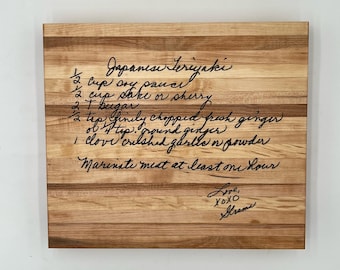 Japanese Teriyaki
1/2 cup soy sauce
1/2 cup sake or sherry
2 T sugar
2 tsp finely chopped fresh ginger
or 1 tsp ground ginger
1 clove crushed garlic or powder
Marinate meat at least one hour
Love,
XOXO
Grams